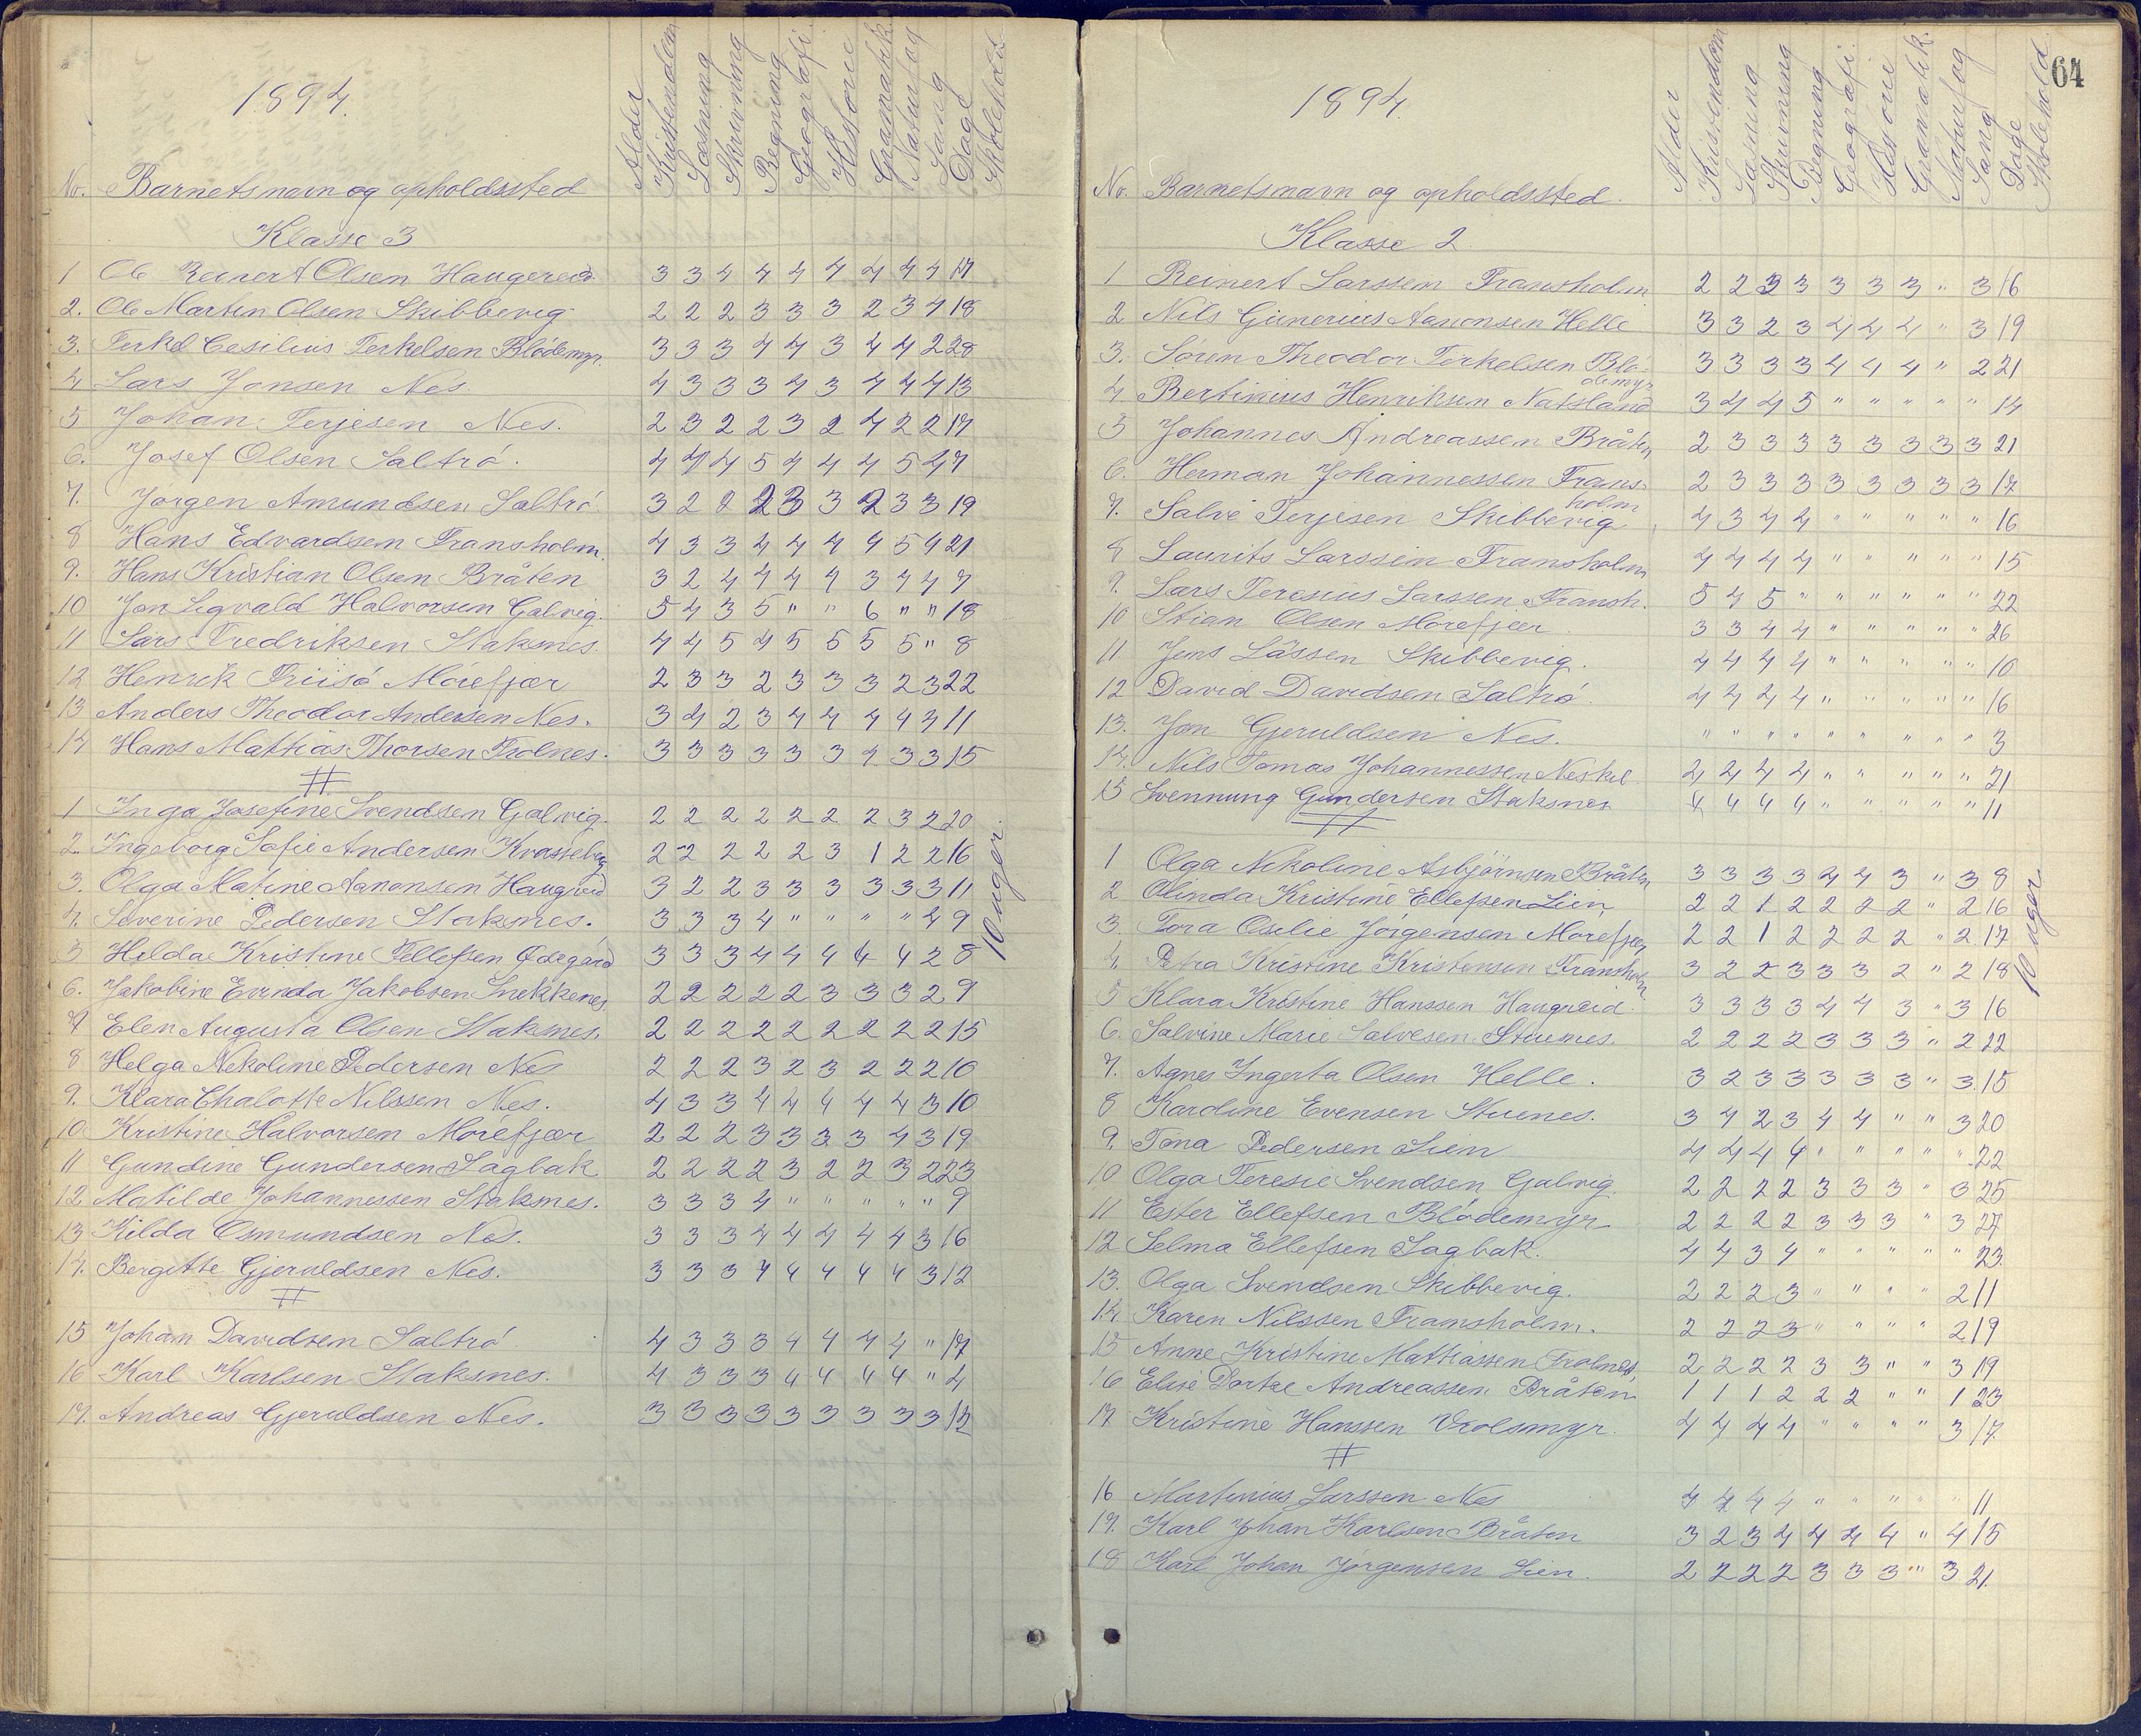 1894.
No. Barnets navn og opholdssted Alder Kristendom Læsning Skrivning Regning Geografi Historie Grammatik Naturfag Sang Dage Skolehold
Klasse 3
1 Ole Reinert Olsen Haugereid 3 3 4 4 4 4 4 4 4 17
2. Ole Martin Olsen Skibbevig 2 2 2 3 3 3 2 3 4 18
3. Terkel Cesilius Terkelsen Blödemyr. 3 3 3 4 4 3 4 4 2 28
4 Lars Jonsen Nes 4 3 3 3 4 3 4 4 4 13
5 Johan Terjesen Nes. 2 3 2 2 3 2 4 2 2 17
6. Josef Olsen Saltrö. 4 4 4 5 4 4 4 5 4 7
7. Jörgen Amundsen Saltrö 3 2 2 2 3 3 2 3 3 19
8 Hans Edvardsen Fransholm. 4 3 3 4 4 4 4 5 4 21
9. Hans Kristian Olsen Bråten 3 2 4 4 4 4 3 4 4 7
10 Jon Sigvald Halvorsen Galvig. 5 4 3 5 " " 6 " " 18
11 Lars Fredriksen Staksnes. 4 4 5 4 5 5 5 5 " 8
12 Henrik Friisö Mörefjær 2 3 3 2 3 3 3 2 3 22
13 Anders Theodor Andersen Nes. 3 4 2 3 4 4 4 4 3 11
14 Hans Mattias Thorsen Trolnes. 3 3 3 3 3 3 4 3 3 15
1 Inga Josefine Svendsen Galvig. 2 2 2 2 2 2 2 3 2 20
2. Ingeborg Sofie Andersen 2 2 2 2 2 3 1 2 2 16
3. Olga Matine Aanonsen Haugreid 3 2 2 3 3 3 3 3 3 11
4. Severine Pedersen Staksnes. 3 3 3 4 " " " " 4 9
5 Hilda Kristine Tellefsen Ödegård 3 3 3 4 4 4 4 4 2 8
6. Jakobine Evinda Jakobsen Snekkenes. 2 2 2 2 2 3 3 3 2 9
7 Elen Augusta Olsen Staksnes. 2 2 2 2 2 2 2 2 2 15
8 Helga Nikoline Pedersen Nes 2 2 2 3 2 3 2 2 2 10
9. Klara Chalotte Nilssen Nes. 4 3 3 4 4 4 4 4 3 10
10 Kristine Halvorsen Mörefjær 2 2 2 3 3 3 3 4 3 19
11 Gundine Gundersen Sagbak 2 2 2 2 3 2 2 3 2 23
12 Matilde Johannessen Staksnes. 3 3 3 4 " " " " " 9
13 Kilda Osmundsen Nes. 3 3 3 4 4 4 4 4 3 16
14. Bergitte Gjeruldsen Nes. 3 3 3 4 4 4 4 4 3 12
15 Johan Davidsen Saltrö 4 3 3 3 4 4 4 4 " 17
16 Karl Karlsen Staksnes. 4 3 3 3 4 4 4 4 " 4
17. Andreas Gjeruldsen Nes. 3 3 3 3 3 3 3 3 3 12
10 uger.
64
1894.
No. Barnets navn og opholdssted. Alder Kristendom Læsning Skrivning Regning Geografi. Historie Gramatik. Naturfag Sang Dage Skolehold.
Klasse 2.
1 Reinert Larssen Fransholm 2 2 3 3 3 3 3 " 3 16
2 Nils Gunerius Aanonsen Helle 3 3 2 3 4 4 4 " 3 19
3. Sören Theodor Terkelsen Blödemyr 3 3 3 3 4 4 4 " 2 21
4. Bertinius Henriksen Naksland 3 4 4 5 " " " " " 14
5 Johannes Andreassen Bråten 2 3 3 3 3 3 3 3 3 21
6. Herman Johannessen Fransholm 2 3 3 3 3 3 3 3 3 17
7. Salve Terjesen Skibbevig 4 3 4 4 " " " " " 16
8 Laurits Larssen Fransholm 4 4 4 4 " " " " " 15
9. Lars Teresius Larssen Fransh. 5 4 5 " " " " " " 22
10 Stian Olsen Mörefjær 3 3 4 4 " " " " " 26
11 Jens Lassen Skibbevig. 4 4 4 4 " " " " " 10
12 David Davidsen Saltrö. 4 4 4 4 " " " " " 16
13. Jon Gjeruldsen Nes. " " " " " " " " " 3
14. Nils Tomas Johannessen Neskil 4 4 4 4 " " " " " 21
15 Svennung Gundersen Staksnes 4 4 4 4 " " " " " 11
1 Olga Nikoline Asbjörnsen Bråten 3 3 3 3 4 4 3 " 3 8
2 Olinda Kristine Ellefsen Lien, 2 2 1 2 2 2 2 " 2 16
3. Tora Oselie Jörgensen Mörefjær 2 2 1 2 2 2 2 " 2 17
4. Petra Kristine Kristensen Fransholm 3 2 2 3 3 3 2 " 2 18
5 Klara Kristine Hanssen Haugreid. 3 3 3 3 4 4 3 " 3 16
6. Salvine Marie Salvesen Stuenes. 2 2 2 2 3 3 3 " 2 22
7. Agnes Ingerta Olsen Helle. 3 2 3 3 3 3 3 " 3 15
8 Kardine Evensen Stuenes. 3 4 2 3 4 4 " " 3 20
9. Tona Pedersen Lien 4 4 4 4 " " " " " 22
10 Olga Teresie Svendsen Galvig. 2 2 2 2 3 3 3 " 3 25
11 Ester Ellefsen Blödemyr 2 2 2 2 3 3 3 " 3 27
12 Selma Ellefsen Sagbak. 4 4 3 4 " " " " " 23.
13. Olga Svendsen Skibbevig. 2 2 2 3 " " " " 2 11
14 Karen Nilssen Fransholm. 2 2 2 3 " " " " 2 19
15 Anne Kristine Mattiassen Trolnes, 2 2 2 2 3 3 " " 3 19
16 Elise Dortee Andreassen Bråten 1 1 1 2 2 2 " " 1 23
17 Kristine Hanssen Vrolsmyr. 4 4 4 4 " " " " 3 17.
16 Martinius Larssen Nes 4 4 4 4 " " " " " 11
17. Karl Johan Karlsen Bråten 3 2 3 4 4 4 4 " 4 15
18 Karl Johan Jörgensen Lien. 2 2 2 2 3 3 3 " 3 21.
10 uger